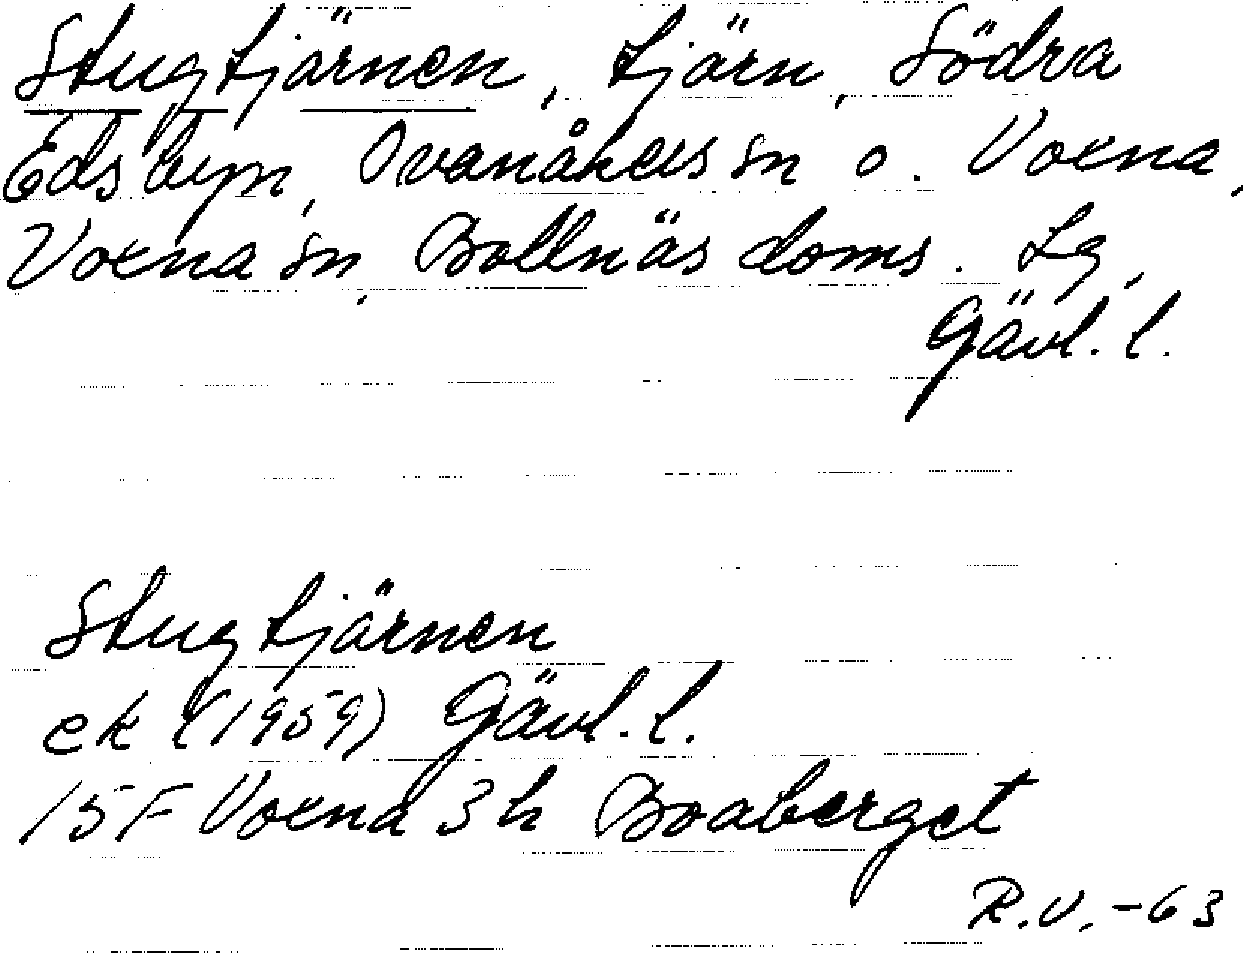 Stugtjärnen, tjärn, Södra
Edsbyn, Ovanåkers sn o. Voxna,
Voxna sn, Bollnäs doms. Lg,
Gävl. l.
Stugtjärnen
ek (1959) Gävl. l.
15F Voxna 3h Boaberget
R.V. -63